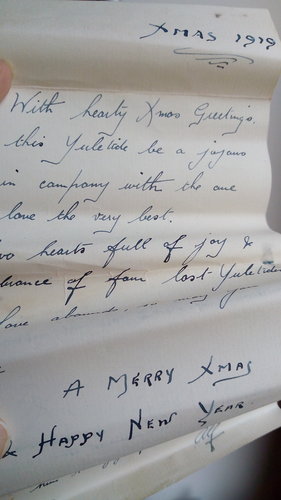 XMAS 1919
With hearty Xmas Greetings.
this Yuletide be a joyous
in company with the one
love the very best.
hearts full of joy &
of four last Yuletides
A MERRY XMAS
& HAPPY NEW YEAR.